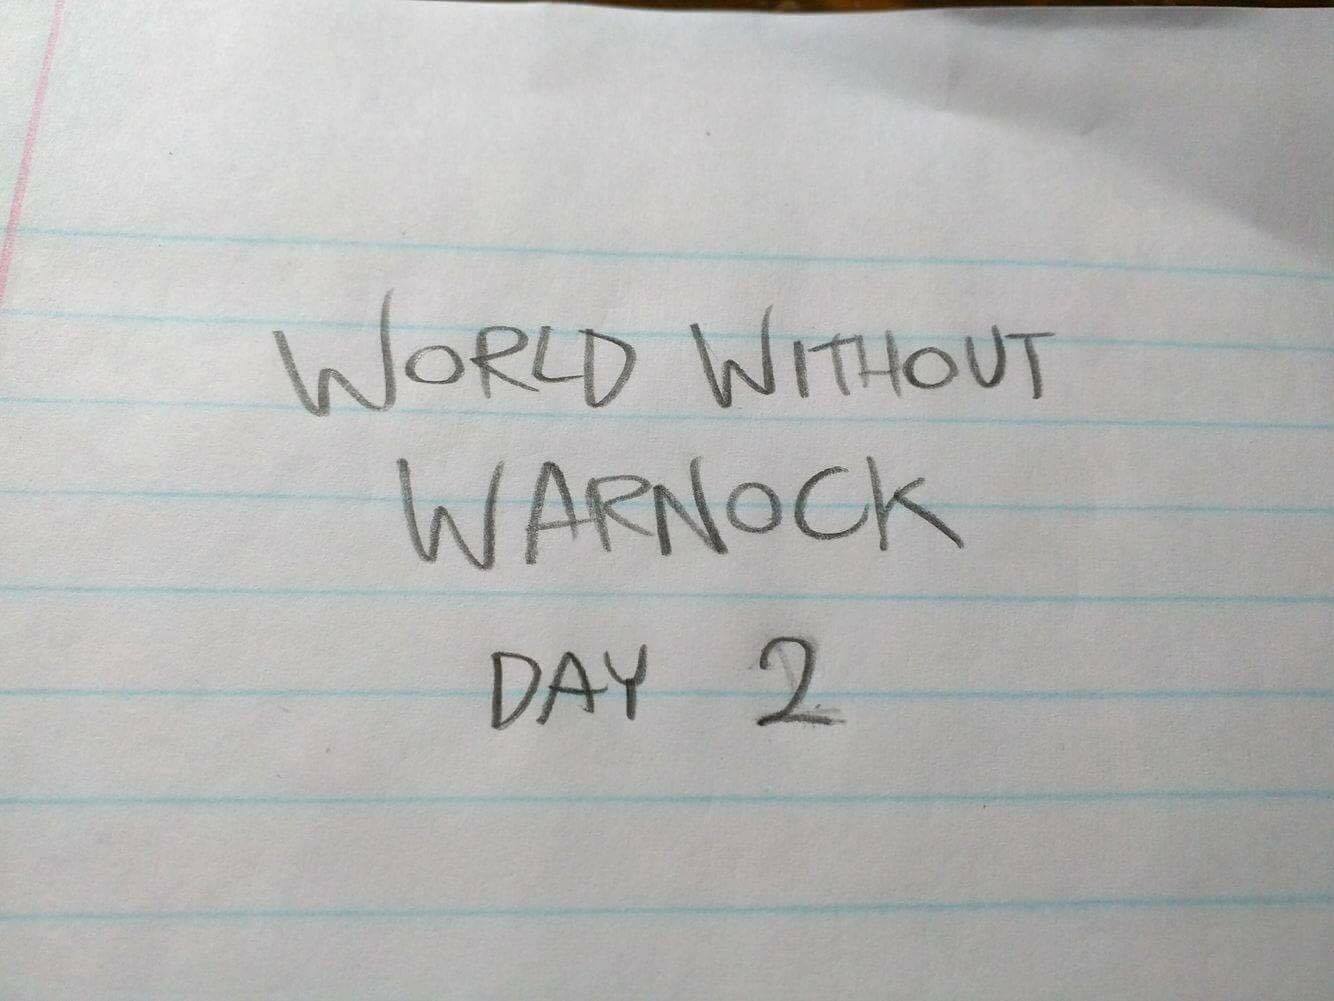 WORLD WITHOUT
WARNOCK
DAY 2